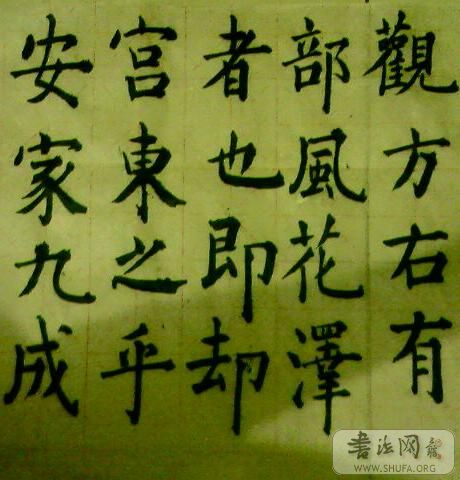 觀方右有
部風花澤
者也即却
宮東之乎
安家九成
書法网
WWW.SHUFA.ORG